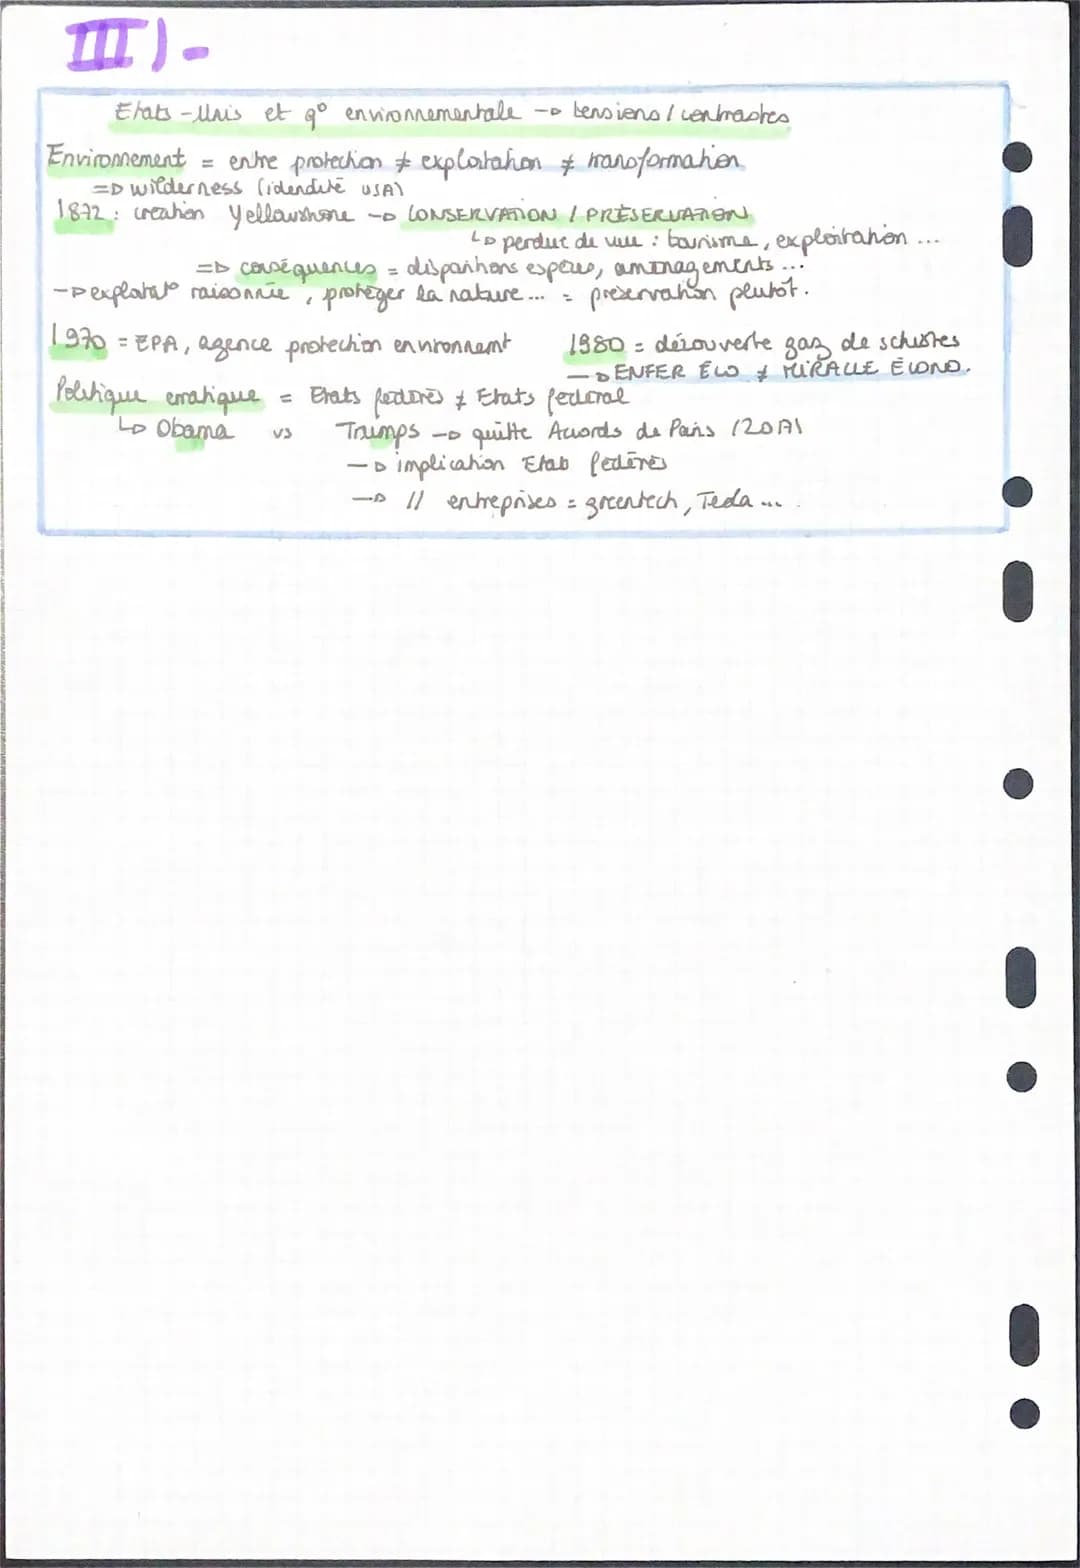 III) -
Etats-Unis et q° environnementale → tensions / contrastes
Environnement = entre protection ≠ exploitation ≠ transformation
=> wilderness (idendité USA)
1872 : creation Yellowstone → CONSERVATION / PRÉSERVATION
↳ perdue de vue : tourisme, exploitation ...
=> conséquences = disparitions espèces, aménagements ...
→ exploitat° raisonnée, protéger la nature ... = préservation plutôt.
1970 = EPA, agence protection environnemt
1980 = découverte gaz de schistes
→ ENFER ÉCO ≠ MIRACLE ÉCONO.
Politique erratique = Etats fédérés ≠ Etats federal
↳ Obama vs Trumps → quitte Accords de Paris (2017)
→ implication Etats fédérés
→ // entreprises = greentech, Tesla ...